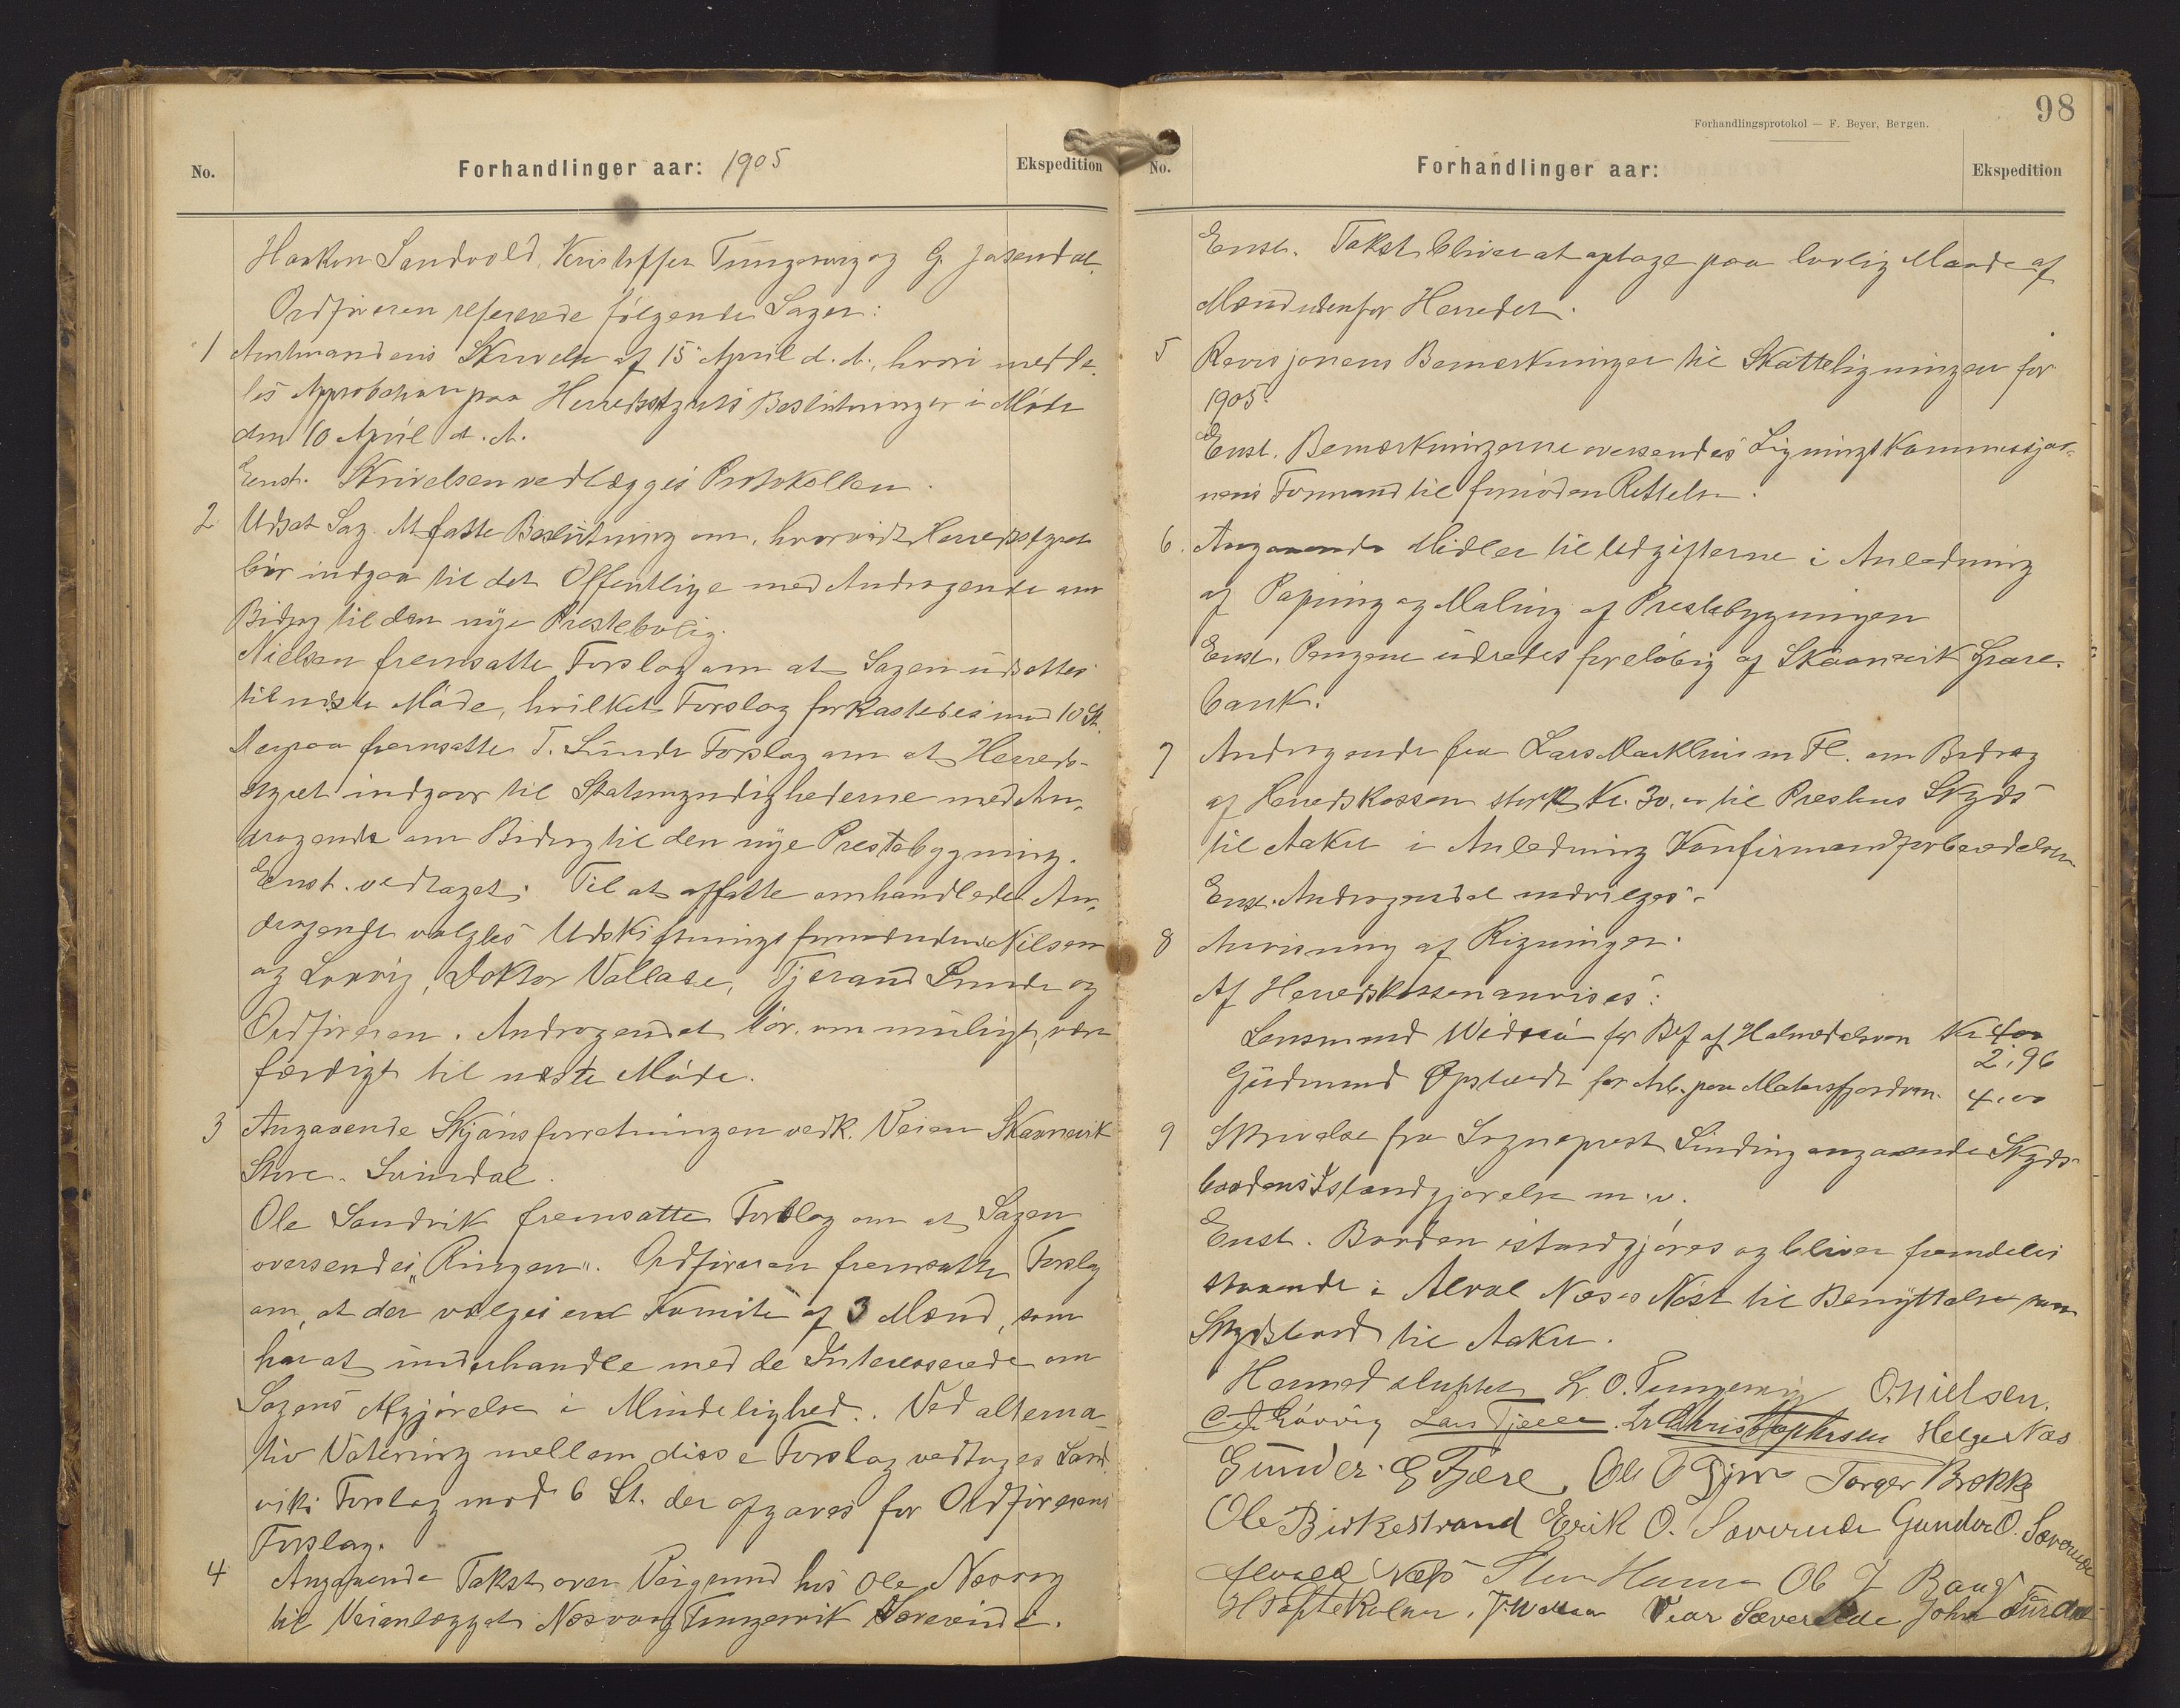 No.
Forhandlinger aar: 1905
Ekspedition
Haakon Sandvold, Kristoffer Tungesvig og G. Jøsendal.
Ordføreren refererede følgende Sager:
1 Amtmandens Skrivelse af 15 April d. A., hvori medde-
les Approbation paa Herredsstyrets Beslutninger i Møde
den 10 April d. A.
Enst. Skrivelsen vedlægges Protokollen.
2 Udsat Sag. At fatte Beslutning om, hvorvidt Herredsstyret
bør indgaa til det Offentlige med Andragende om
Bidrag til den nye Prestebolig.
Nielsen fremsatte Forslag om at Sagen udsættes
til næste Møde, hvilket Forslag forkastedes mod 10 St.
Derpaa fremsatte T. Sunde Forslag om at Herreds-
styret indgaar til Statsmyndighederne med An-
dragende om Bidrag til den nye Prestebygning.
Enst. vedtaget. Til at affatte omhandlede An-
dragende valgtes Udskiftningsformændene Nilsen
og Løvvig, Doktor Vallase, Tjerand Sunde og
Ordføreren. Andragendet bør, om muligt, være
færdigt til næste Møde.
3 Angaaende Skjønsforretningen vedk. Veien Skaanevik
Store-Svindal.
Ole Sandvik fremsatte Forslag om at Sagen
oversendes „Ringen“. Ordføreren fremsatte Forslag
om, at der vælges en Komite af 3 Mænd, som
har at underhandle med de Interesserede om
Sagens Afgjørelse i Mindelighed. Ved alterna-
tiv Votering mellem disse Forslag vedtoges Sand-
viks Forslag mod 6 St. der afgaves for Ordførerens
Forslag.
4 Angaaende Takst over Veigrund hos Ole Næsvog
til Veianlægget Næsvaag Tungesvik Sævereide.
98
Forhandlingsprotokol — F. Beyer, Bergen.
No.
Forhandlinger aar:
Ekspedition
Enst. Takst bliver at optage paa lovlig Maade af
Mænd udenfor Herredet.
5 Revisjonens Bemerkninger til Skatteligningen for
1905.
Enst. Bemærkningerne oversendes Ligningskommissjo-
nens Formand til fornøden Rettelse.
6. Angaaende Midler til Udgifterne i Anledning
af Paping og Maling af Prestebygningen
Enst. Pengene udredes foreløbig af Skaanevik Spare-
bank.
7 Andragende fra Lars Markhus m Fl. om Bidrag
af Herredskassen stort Kr. 30.00 til Prestens Skyds
til Aakre i Anledning Konfirmandforberedelsen
Enst. Andragendet indvilges.
8 Anvisning af Rigninger.
Af Herredskassen anvises:
Lensmand for Bef af Kr 4.00
2,96
Gudmund Opstvedt for Arb. paa Matersfjordvn. 4.00
9 Skrivelse fra Sogneprest Linding angaaende Skyds-
baadens Istandgjørelse m. v.
Enst. Baaden istandgjøres og bliver fremdeles
staaende i Alval Næses Nøst til Benyttelse som
Skydsbaad til Aakre.
Hermed sluttet L. O. Tungesvig O. Nielsen.
C. J. Løvvig Lars Tjelle. Christophersen Helge Næs
Gunder G Fjære Ole Torger Brekke
Ole Birkestrand Erik O. Severude Gunder O. Severude
Alvald Næss Ole J Baug
Sæverude John